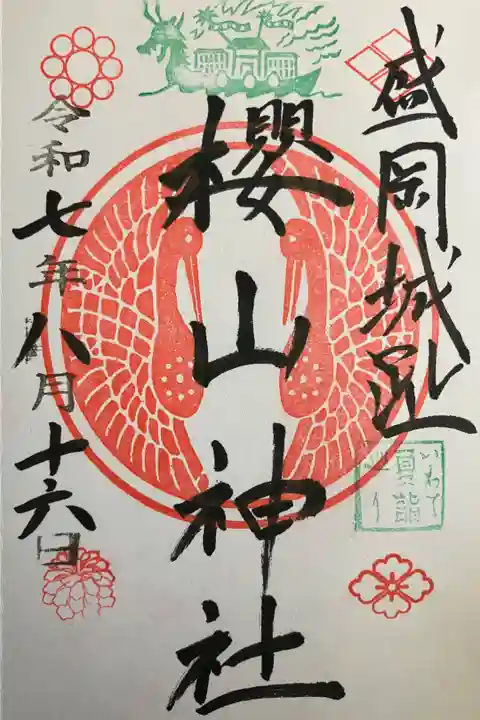 盛岡城跡
櫻山神社
令和七年八月十六日
いわて
夏詣
巡り